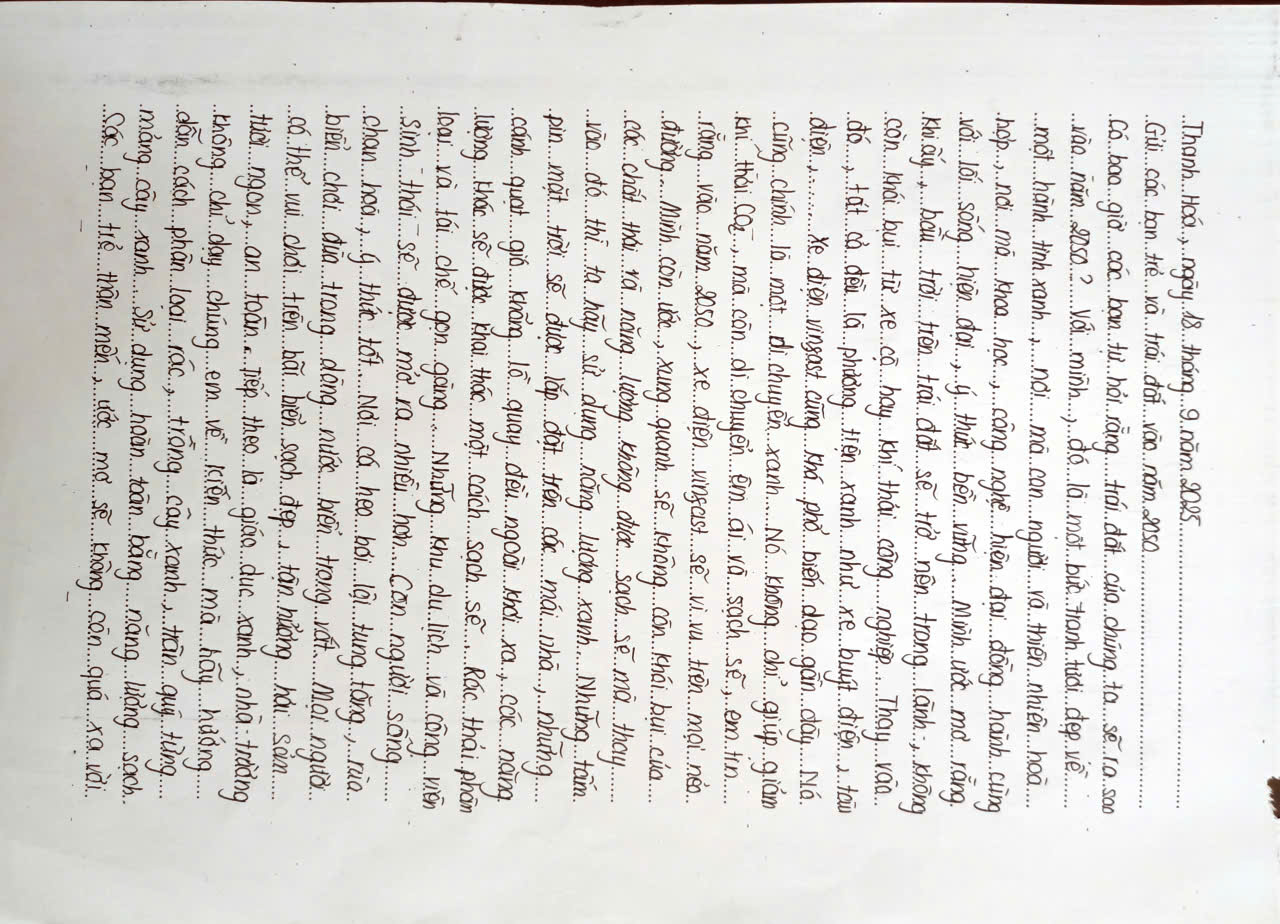 Thanh Hoá, ngày 18 tháng 9 năm 2025
Gửi các bạn trẻ và trái đất vào năm 2050
Có bao giờ các bạn tự hỏi rằng trái đất của chúng ta sẽ ra sao
vào năm 2050? Với mình, đó là một bức tranh tươi đẹp về
một hành tinh xanh, nơi mà con người và thiên nhiên hoà
hợp, nơi mà khoa học, công nghệ hiện đại đồng hành cùng
với lối sống hiện đại, ý thức bền vững. Mình ước mơ rằng
khi ấy, bầu trời trên trái đất sẽ trở nên trong lành, không
còn khói bụi từ xe cộ hay khí thải công nghiệp. Thay vào
đó, tất cả đều là phương tiện xanh như xe buýt điện, tàu
điện,... Xe điện vinfast cũng khá phổ biến dạo gần đây. Nó
cũng chính là một di chuyển xanh. Nó không chỉ giúp giảm
khí thải CO2, mà còn di chuyển êm ái và sạch sẽ, em tin
rằng vào năm 2050, xe điện vinfast sẽ vi vu trên mọi nẻo
đường. Mình còn ước, xung quanh sẽ không còn khói bụi của
các chất thải và năng lượng không được sạch sẽ mà thay
vào đó thì ta hãy sử dụng năng lượng xanh. Những tấm
pin mặt trời sẽ được lắp đặt trên các mái nhà, những
cánh quạt gió khổng lồ quay đều ngoài khơi xa, các năng
lượng khác sẽ được khai thác một cách sạch sẽ. Rác thải phân
loại và tái chế gọn gàng. Những khu du lịch và công viên
sinh thái sẽ được mở ra nhiều hơn. Con người sống
chan hoà, ý thức tốt. Nơi có heo bơi lội tung tăng, rùa
biển chơi đùa trong dòng nước biển trong vắt. Mọi người
có thể vui chơi trên bãi biển sạch đẹp, tận hưởng hải sản
tươi ngon, an toàn. Tiếp theo là giáo dục xanh, nhà trường
không chỉ dạy chúng em về kiến thức mà hãy hướng
dẫn cách phân loại rác, trồng cây xanh, trân quý từng
mảng cây xanh. Sử dụng hoàn toàn bằng năng lượng sạch.
Các bạn trẻ thân mến, ước mơ sẽ không còn quá xa vời